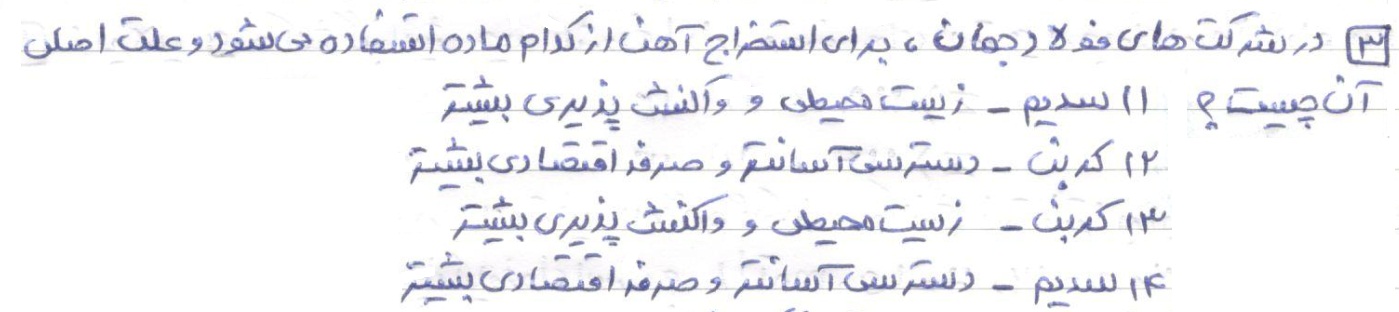 ۳ در شرکت های فولاد جهان ، برای استخراج آهن از کدام ماده استفاده می شود و علت اصلی
آن چیست ؟ ۱) سدیم - زیست محیطی و واکنش پذیری بیشتر
۲) کربن - دسترسی آسانتر و صرفه اقتصادی بیشتر
۳) کربن - زیست محیطی و واکنش پذیری بیشتر
۴) سدیم - دسترسی آسانتر و صرفه اقتصادی بیشتر